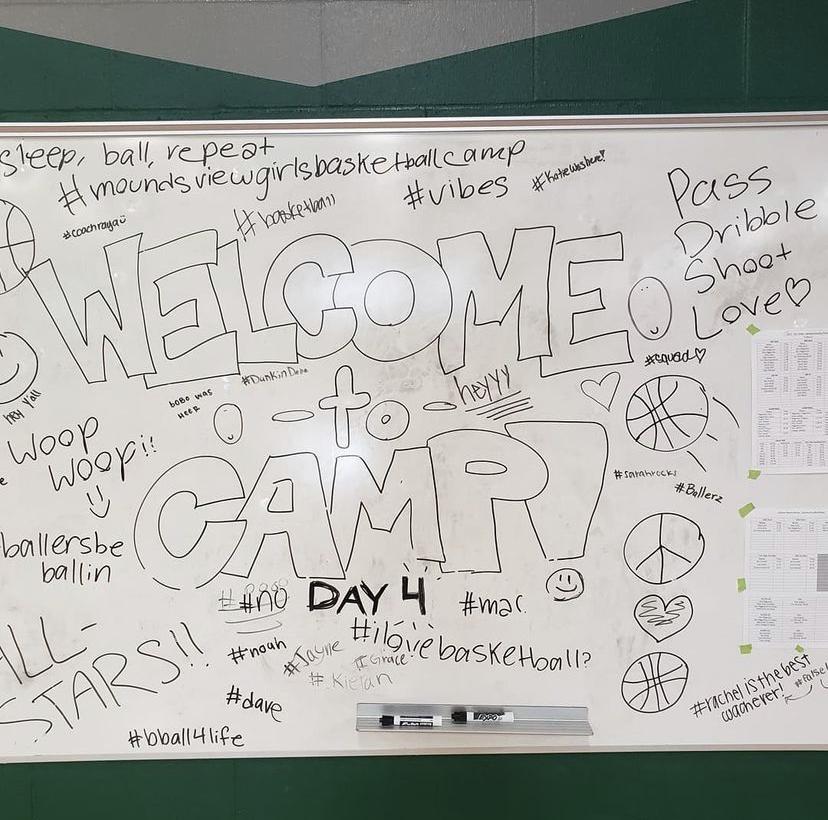 sleep, ball, repeat
#moundsviewgirlsbasketballcamp
#vibes
#Katiewashere!
#coachraya
#basketball
Pass
Dribble
Shoot
Love♡
WELCOME
#squad♡
hey yall
bobo was
heer
#DunkinDone
-to-
heyyy
Woop
Woop!!
CAMP!
#sarahrocks
#Ballerz
ballersbe
ballin
#no
DAY 4
#mac.
#ilovebasketball?
ALL-
STARS!!
#noah
#Jayne
#Grace
#Kieran
#dave
#bball4life
#rachelisthebest
coachever!
#false!
EXPO